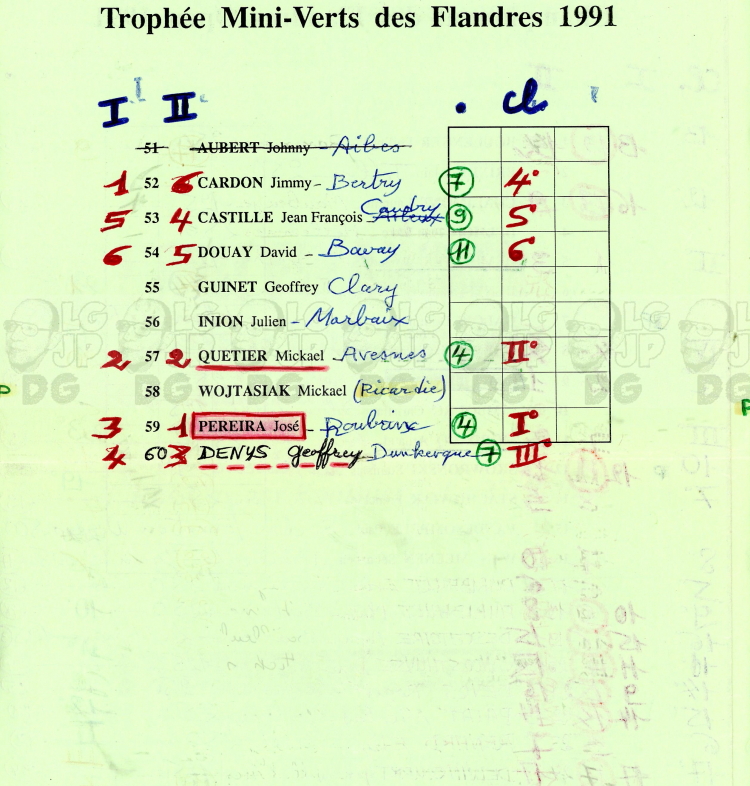 Trophée Mini-Verts des Flandres 1991
I II . cl
51 AUBERT Johnny - Aibes
1 52 6 CARDON Jimmy - Bertry 7 4°
5 53 4 CASTILLE Jean François Caudry 9 5°
6 54 5 DOUAY David - Bavay 11 6°
55 GUINET Geoffrey Clary
56 INION Julien - Marbaix
2 57 2 QUETIER Mickael - Avesnes 4 II°
58 WOJTASIAK Mickael (Picardie)
3 59 1 PEREIRA José - Roubaix 4 I°
4 60 3 DENYS Geoffrey Dunkerque 7 III°
LG JP DG